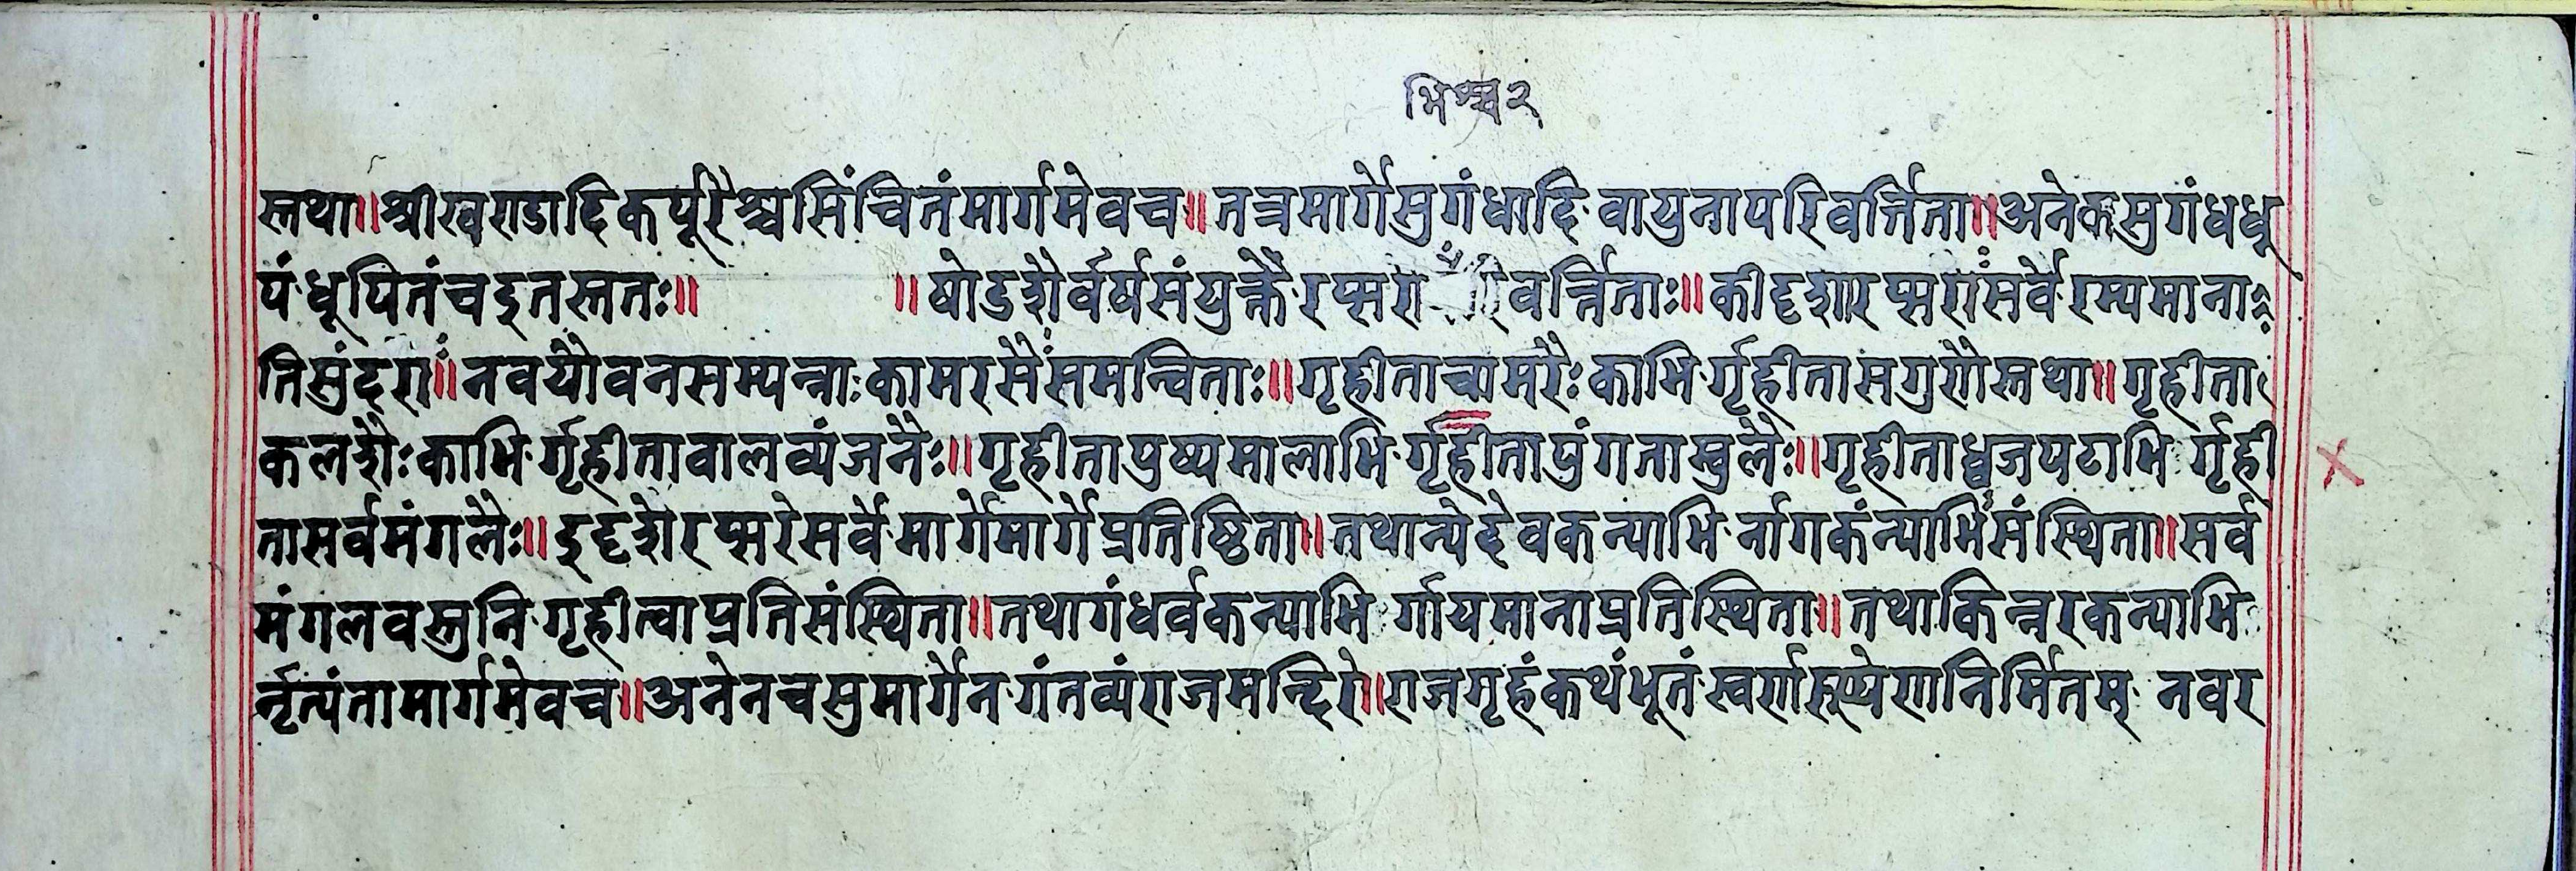 भिश्च२
स्तथा॥श्रीखण्डादिकर्पूरैश्चसिंचितंमार्गमेवच॥तत्रमार्गेसुगंधादिवायुनापरिवर्त्तिता॥अनेकसुगंधधू
पंधूपितंचइतस्ततः॥ ॥षोडशैर्वर्षसंयुक्तैरप्सरा वर्त्तिताः॥कीदृशारप्सराःसर्वेरम्यमाना
तिसुंदराः॥नवयौवनसम्पन्नाःकामरसैःसमन्विताः॥गृहीताचामरैःकाभिर्गृहीतासगुणैस्तथा॥गृहीता
कलशैःकाभिर्गृहीतावालव्यंजनैः॥गृहीतापुष्पमालाभिर्गृहीतापुंगताम्बुलैः॥गृहीताध्वजपटाभिर्गृही
तासर्वमंगलैः॥इदृशैरप्सरेसर्वेमार्गेमार्गेप्रतिष्ठिता॥तथान्येदेवकन्याभिर्नागकंन्याभिःसंस्थिता॥सर्व
मंगलवस्तुनिगृहीत्वाप्रतिसंस्थिता॥तथागंधर्वकन्याभिर्गायमानाप्रतिस्थिता॥तथाकिन्नरकन्याभि
र्नृत्यंतामार्गमेवच॥अनेनचसुमार्गेनगंतव्यंराजमन्दिरे॥राजगृहंकथंभूतंस्वर्णरूप्येणनिर्मितम् नवर